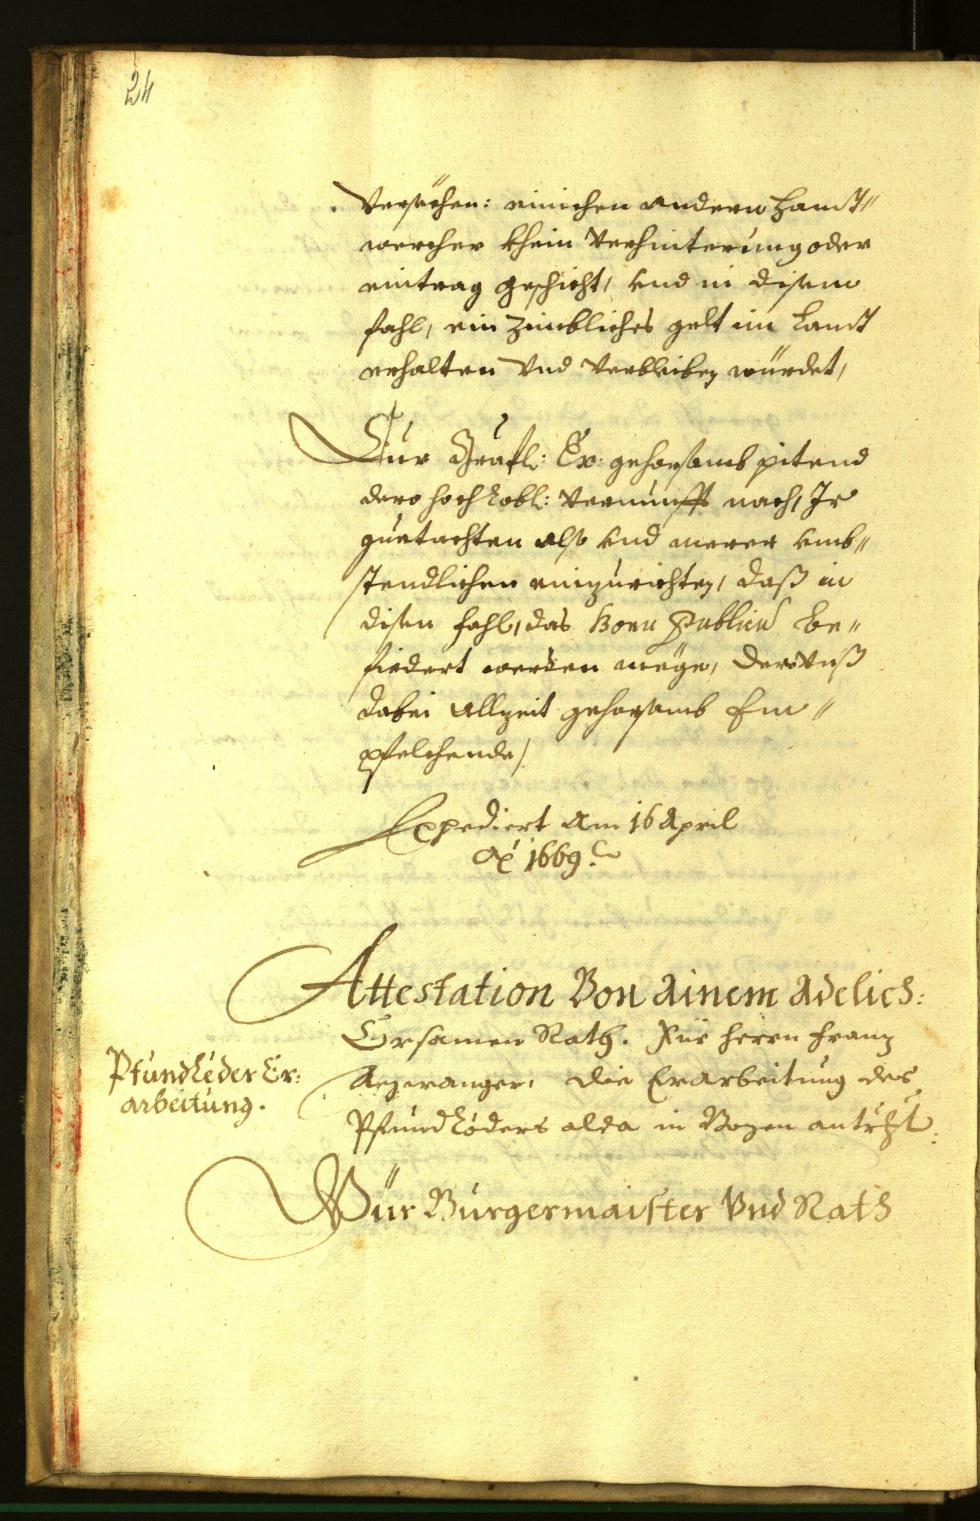 24
versechen: einichen andern Handt„
wercher khein verhinterung oder
eintrag geschicht, vnd in disem
fahl, ein zimbliches gelt im Landt
erhalten vnd verbleiben würdet,
Eur Gräfl: Ex: gehorsamb pitend
dero hochlobl: vernunfft nach, Ir
guetachten also vnd merer vmb„
stendlichen einzurichten, daß in
disen fahl, das bonu publicu be„
firdert werden möge, deroVnß
dabei allzeit gehorsamb Em„
pfelchende/
Expediert am 16 April
Aō 1669.
Attestation Von Ainem Adelich:
Ersamen Rath. Für herrn Franz
Pfundleder Er:
arbeitung.
die Erarbeitung des
Pfundlöders alda in Bozen antr:
Wür Burgermaister Vnd Rath